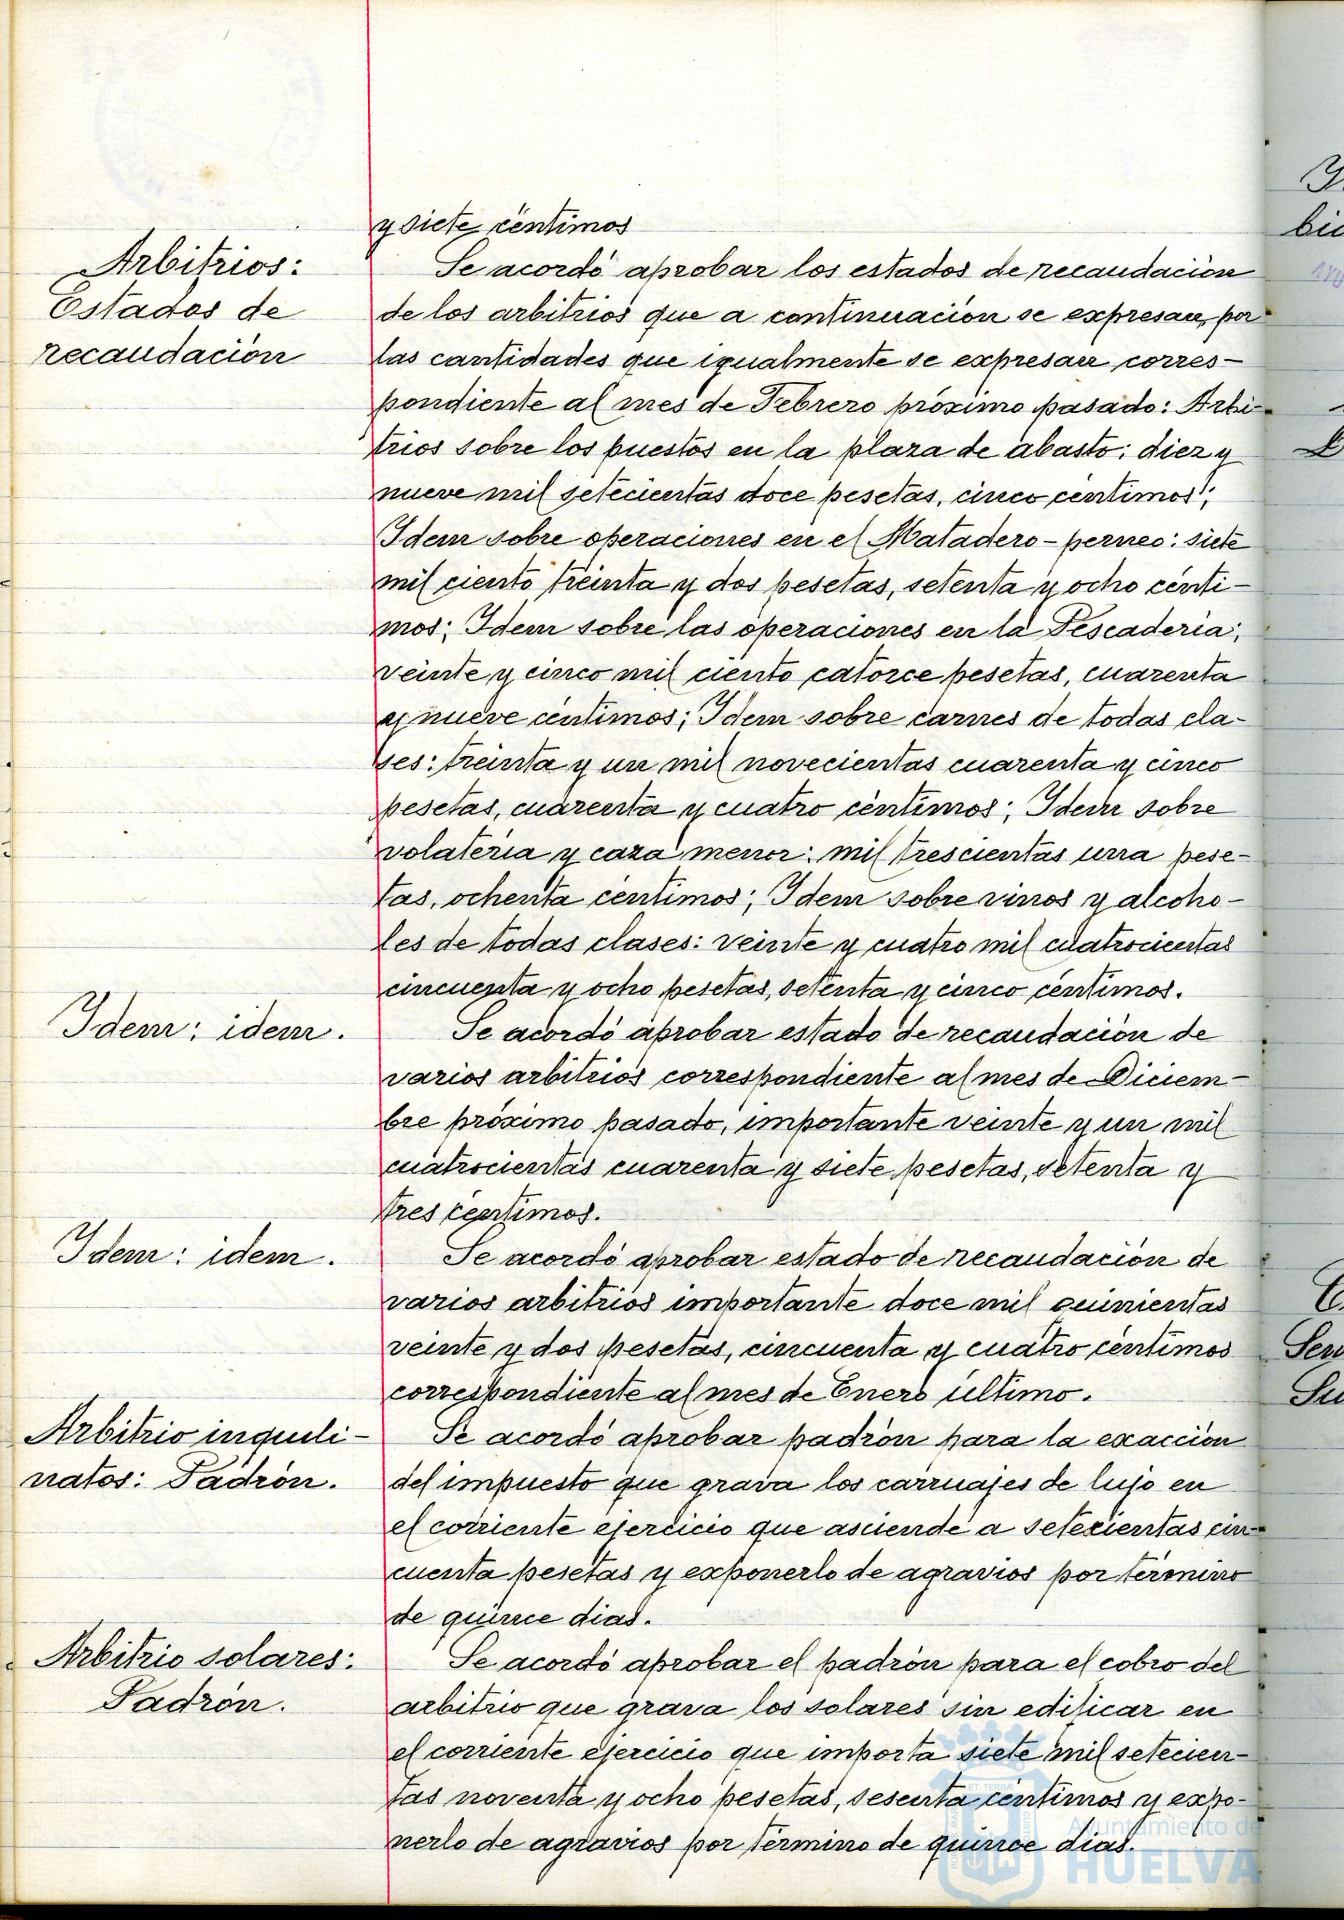 y siete céntimos
Arbitrios:
Estados de
recaudación
Se acordó aprobar los estados de recaudación
de los arbitrios que a continuación se expresan, por
las cantidades que igualmente se expresan corres-
pondiente al mes de Febrero próximo pasado: Arbi-
trios sobre los puestos en la plaza de abasto; diez y
nueve mil setecientas doce pesetas, cinco céntimos;
Idem sobre operaciones en el Matadero-perneo: siete
mil ciento treinta y dos pesetas, setenta y ocho cénti-
mos; Idem sobre las operaciones en la Pescadería;
veinte y cinco mil ciento catorce pesetas, cuarenta
y nueve céntimos; Idem sobre carnes de todas cla-
ses: treinta y un mil novecientas cuarenta y cinco
pesetas, cuarenta y cuatro céntimos; Idem sobre
volatería y caza menor: mil trescientas una pese-
tas, ochenta céntimos; Idem sobre vinos y alcoho-
les de todas clases: veinte y cuatro mil cuatrocientas
cincuenta y ocho pesetas, setenta y cinco céntimos.
Idem: idem.
Se acordó aprobar estado de recaudación de
varios arbitrios correspondiente al mes de Diciem-
bre próximo pasado, importante veinte y un mil
cuatrocientas cuarenta y siete pesetas, setenta y
tres céntimos.
Idem: idem.
Se acordó aprobar estado de recaudación de
varios arbitrios importante doce mil quinientas
veinte y dos pesetas, cincuenta y cuatro céntimos
correspondiente al mes de Enero último.
Arbitrio inquili-
natos: Padrón.
Se acordó aprobar padrón para la exacción
del impuesto que grava los carruajes de lujo en
el corriente ejercicio que asciende a setecientas cin-
cuenta pesetas y exponerlo de agravios por término
de quince dias.
Arbitrio solares:
Padrón.
Se acordó aprobar el padrón para el cobro del
arbitrio que grava los solares sin edificar en
el corriente ejercicio que importa siete mil setecien-
tas noventa y ocho pesetas, sesenta céntimos y expo-
nerlo de agravios por término de quince días.
Ayuntamiento de
HUELVA